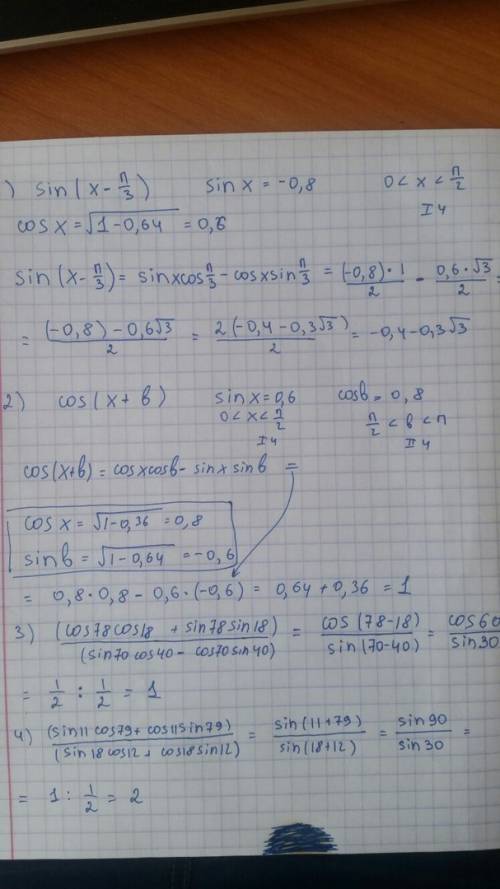 ) sin(x - п/3) sin x = -0,8 0 < x < п/2
I ч
cos x = √(1-0,64) = 0,6
sin(x - п/3) = sinxcos п/3 - cosxsin п/3 = (-0,8)·1/2 - 0,6·√3/2 =
= (-0,8) - 0,6√3/2 = 2(-0,4 - 0,3√3)/2 = -0,4 - 0,3√3
2) cos(x + в) sin x = 0,6 cosв = 0,8
0 < x < п/2 п/2 < в < п
I ч II ч
cos(x+в) = cosxcosв - sinx sinв =
cos x = √(1-0,36) = 0,8
sin в = √(1-0,64) = -0,6
= 0,8·0,8 - 0,6·(-0,6) = 0,64 + 0,36 = 1
3) (cos78cos18 + sin78sin18)/(sin70cos40 - cos70sin40) = cos(78-18)/sin(70-40) = cos60/sin30
= 1/2 : 1/2 = 1
4) (sin11cos79 + cos11sin79)/(sin18cos12 + cos18sin12) = sin(11+79)/sin(18+12) = sin90/sin30 =
= 1 : 1/2 = 2